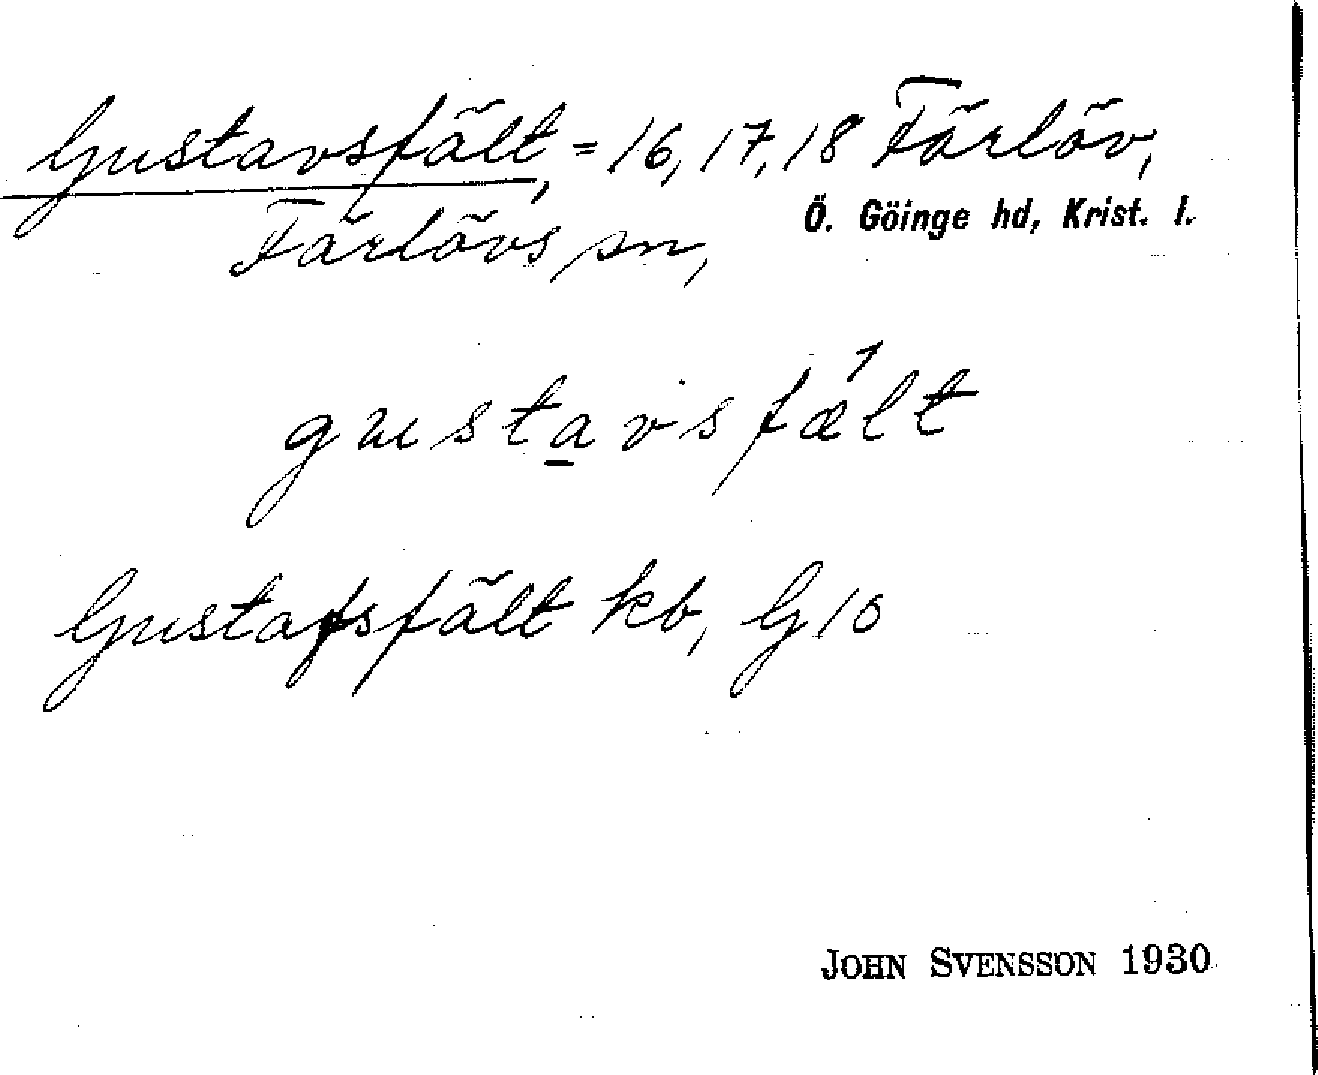 Gustavsfält, = 16, 17, 18 Färlöv,
Färlövs sn, Ö. Göinge hd, Krist. l.
gustavsfælt
Gustafsfält kb, G 10
JOHN SVENSSON 1930